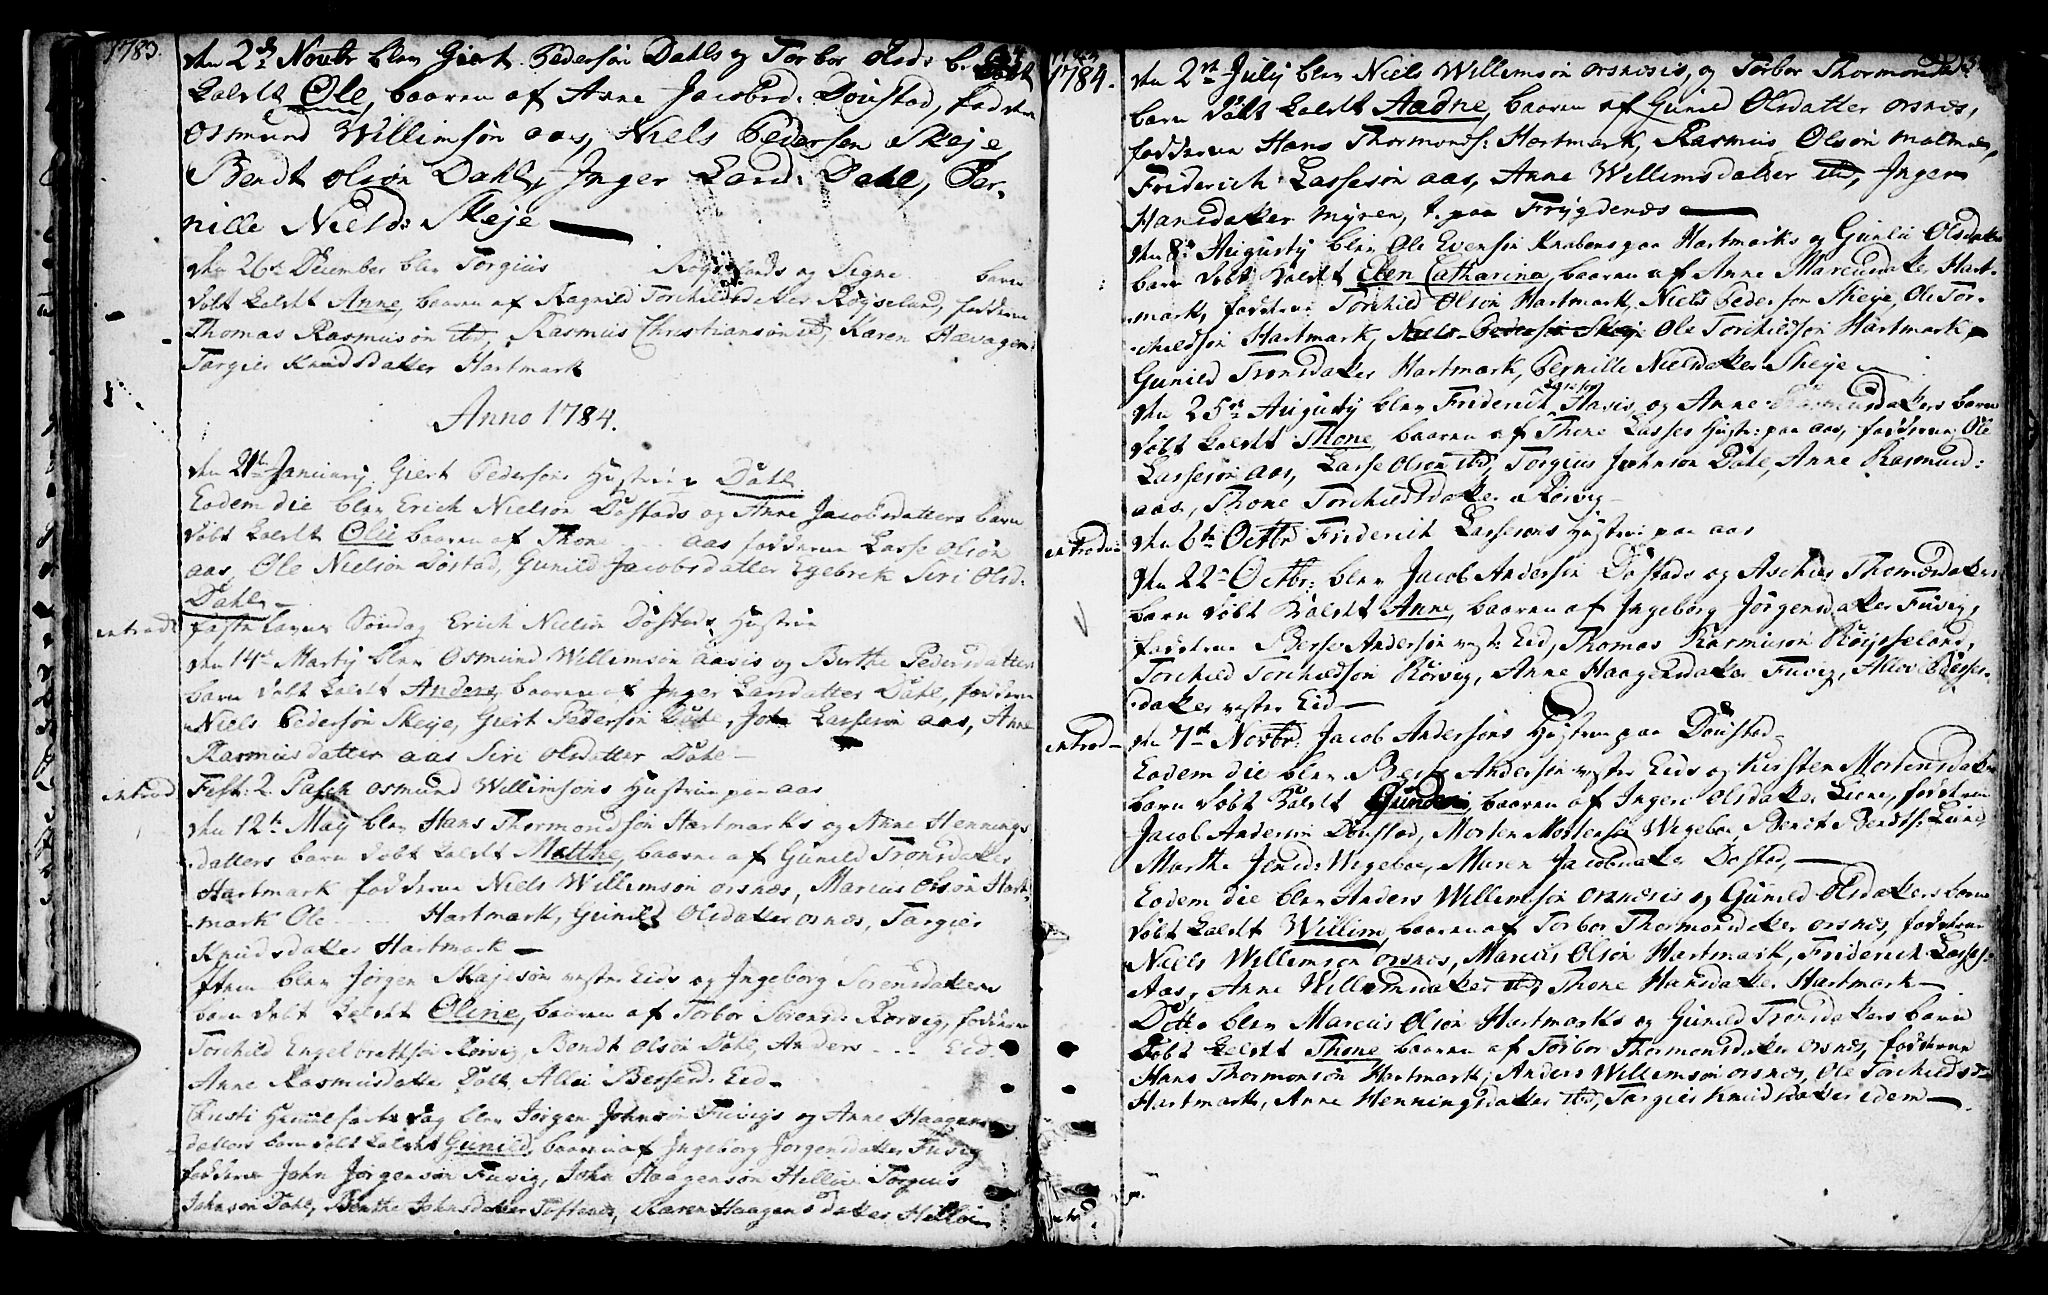 1783.
den 2den Novbr blev Giert Pedersøn Dahls og Torbor Olsd: b. døbt
kaldt Ole, baaren af Anne Jacobsd: Døustad, faddere
Osmund Willimsøn aas, Niels Pedersen Skeje,
Bendt olsøn Dahl, Inger Larsd: Dahl, Per-
nille Nielsd: Skeje
den 26de December blev Torgius Røyselands og Signe barn
døbt kaldt Anne, baaren af Ragnild Torchildsdatter Røyseland, faddere
Thomas Rasmusøn ibd, Rasmus Christiansøn ibd, Karen Hævagen
Targier Knudsdatter Hartmark
Anno 1784.
den 21de January Giert Pedersøns Hustru Dahl
Eodem die blev Erich Nielsøn Døstads og Anne Jacobsdatters barn
døbt kaldt Olu baaren af Thone aas fadderne Lasse Olsøn
aas, Ole Nielsøn Døstad, Gunild Jacobsdatter Egebrek Siri Olsd:
Dahl
introd: faste Lavns Søndag Erich Nielsøn Døstads Hustrue
den 14de Martij blev Osmund Willemsøn aasis og Berthe Pedersdatters
barn døbt kaldt Anders, baaren af Inger Larsdatter Dahl, faddere
Niels Pedersøn Skeije, Giert Pedersøn Dahl, John Lassesøn aas, Anne
Rasmusdatter aas Siri Olsdatter Dahl
introd Fest: 2. Pasch Osmund Willimsøns Hustrue paa aas
den 12te Maij blev Hans Thormondsøn Hartmarks og Anne Hennings
datters barn døbt kaldt Matthe, baaren af Gunild Tronsdatter
Hartmark fadderne Niels Willemsøn orsnæs, Marcus Olsøn Hart-
mark Ole Hartmark, Gunild Olsdatter orsnæs, Targier
Knudsdatter Hartmark
Item blev Jørgen Skajesøn vestre Eids og Ingeborg Sørensdatters
barn døbt kaldt Oline, baaren af Torbor Sørensd: Rørvig, faddere
Torchild Engelbrettsøn Rørvig, Bendt Olsøn Dahl, Anders - - - Eid
Anne Rasmusdatter Dahl, Alloi Bersesd: Eid
Christi Himmelfarts dag blev Jørgen Johnsøn Fuvigs og Anne Haagens
datters barn døbt kaldt Gunild, baaren af Ingeborg Jørgensdatter Fuvig
faddere John Jørgensøn Fuvig, John Haagensøn Helløe Torgius
Johnsøn Dahl, Berthe Johnsdatter Toftenes, Karen Haagensdatter Helløe
1784.
den 2den Julij blev Niels Willemsøn orsnæsis, og Torbor Thormondsd:
barn døbt kaldt Aadne, baaren af Gunild Olsdatter orsnæs,
fadderne Hans Thormonds: Hartmark, Rasmus Olsøn malmøe,
Friderich Lassesøn aas, Anne Willemsdatter ibd, Inger
Hansdatter myren, t. paa Frygdenæs
den 8de Augusty blev Ole Evensøn Knabens paa Hartmarks og Gunlu Olsdatters
barn døbt kaldt Elen Catharina, baaren af Anne Marcusdatter Hart-
mark, faddere Torchild Olsøn Hartmark, Niels Pedersøn Skeje, Ole Tor-
childsøn Hartmark, Niels Pedersøn Skeje Ole Torchildsøn Hartmark
Gunild Tronsdatter Hartmark, Pernille Nielsdatter Skeje
den 25de Augusty blev Friderich Lassesøn Aasis, og Anne Rasmusdatters barn
døbt kaldt Thone, baaren af Thone Lasses Hustr: paa aas, fadderne Ole
Lassesøn aas, Lasse Olsøn ibd, Torgius Johnsøn Dahl, Anne Rasmusd:
aas, Thone Torchildsdatter Rørvig
introd: den 6te Octbr Friderich Lassesøns Hustru paa aas
den 22de Octbr: blev Jacob Andersøn Døstads og Aschier Thomasdatters
barn døbt kaldt Anne, baaren af Ingeborg Jørgensdatter Fuvig,
faddere Berse Andersøn vestre Eid, Thomas Rasmusøn Røysseland,
Torchild Torchildsøn Rørvig, Anne Haagensdatter Fuvig, Alloi Berses-
datter vestre Eid
introd den 7de Novbr: Jacob Andersøns Hustrue paa Døustad
Eodem die blev Berse Andersøn vestre Eids og Kirsten Mortensdatters
barn døbt kaldt Gunder, baaren af Inger Olsdatter Liene, faddere
Jacob Andersøn Døustad, Morten Mortensøn Wegeboe Bendt Bendts: Liene
Marthe Jensd: Wegeboe, Maren Jacobsdatter Døstad,
Eodem die blev Anders Willemsøn orsnæsis og Gunild Olsdatters barn
døbt kaldt Willim, baaren af Torbor Thormonsdatter orsnæs, fadderne
Niels Willemsøn orsnæs, Marcus Olsøn Hartmark, Friderich Lasses:
Aas, Anne Willumsdatter ibd, Thone Hansdatter Hartmark
Dito blev Marcus Olsøn Hartmarks og Gunild Tronsdatters barn
døbt kaldt Thone, baaren af Torbor Thormonsdatter orsnæs, fadderne
Hans Thormonsøn Hartmark, Anders Willemsøn orsnæs, Ole Torchildsøn
Hartmark, Anne Henningsdatter ibd, Targier Knudsdatter idem
introd